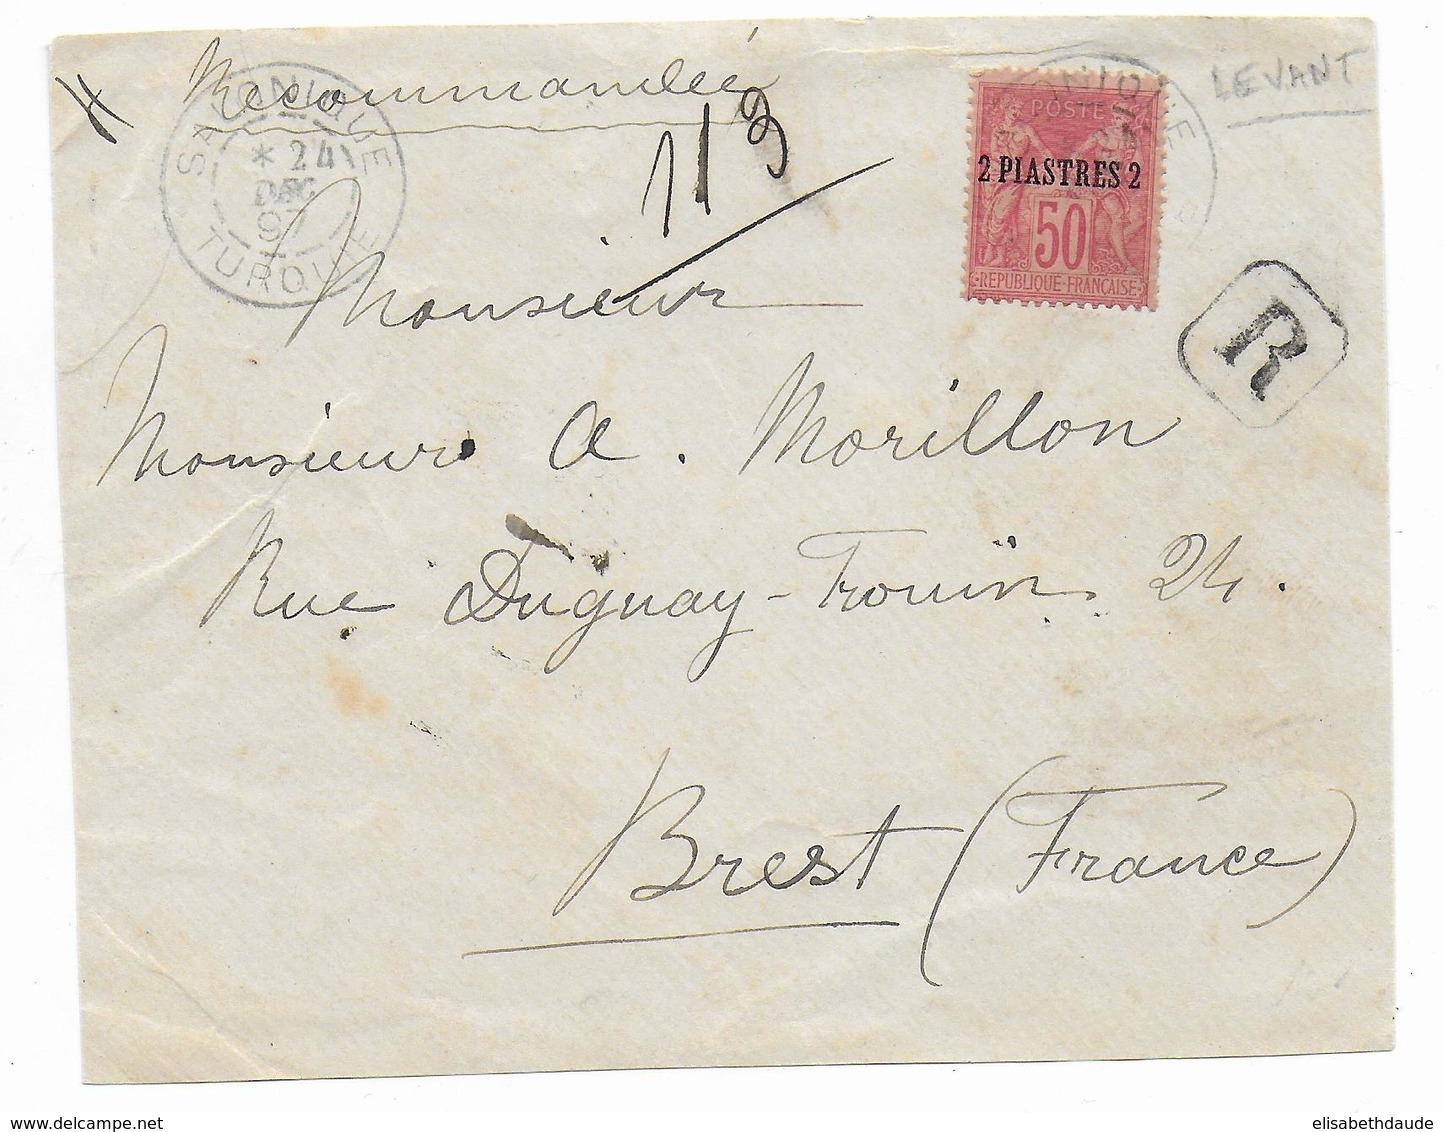 Recommandée
LEVANT
SALONIQUE
* 24
DEC
97
TURQUIE
118
POSTE
2 PIASTRES 2
50
REPUBLIQUE-FRANCAISE
R
Monsieur
Monsieur A. Morillon
Rue Duguay-Trouin 24.
Brest (France)
elisabethdaude